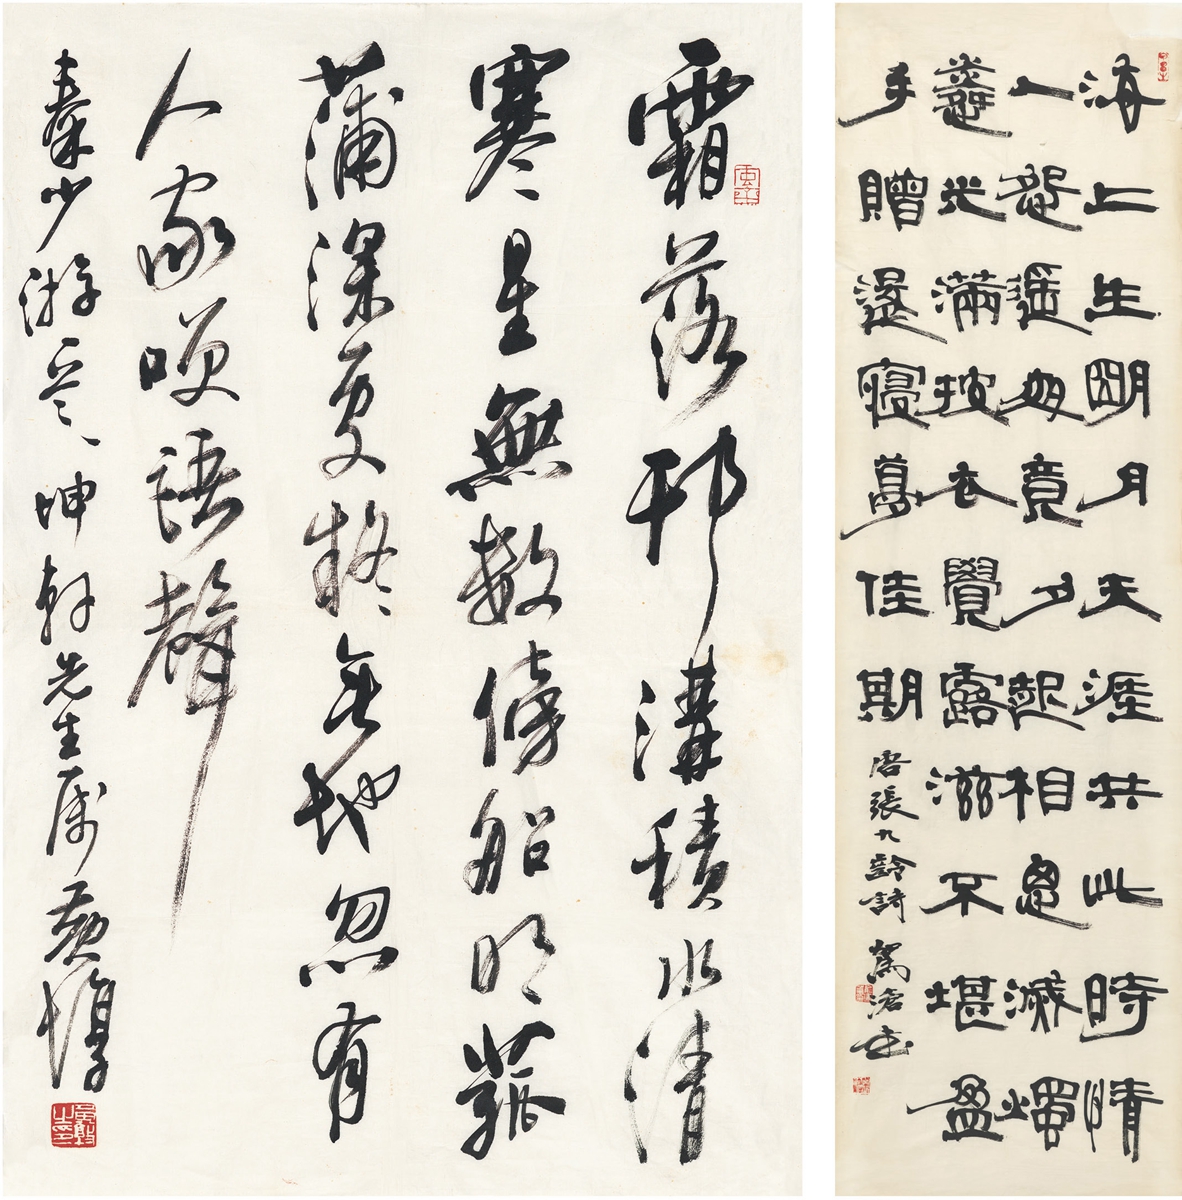 霜落邗溝積水清
寒星無數傍船明菰
蒲深處疑无地忽有
人家笑語聲
秦少游 坤軒先生属 黄惇
海上生朙月天涯共此時情
人怨遥夜竟夕起相思滅燭
憐光滿披衣覺露滋不堪盈
手贈還寢夢佳期 唐張九齡詩 駕滄書